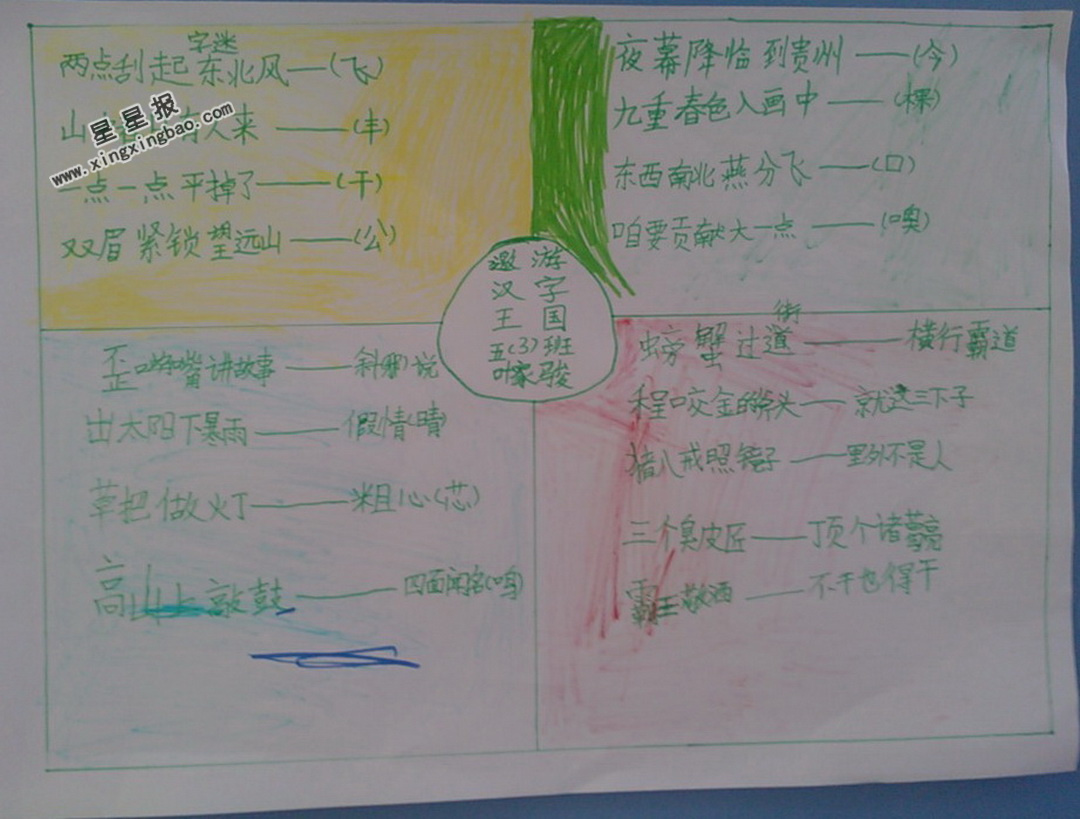 字迷
两点刮起东北风——(飞)
山 人来——(丰)
一点一点平掉了——(干)
双眉紧锁望远山——(公)
星星报
www.xingxingbao.com
夜幕降临到贵州——(今)
九重春色入画中——(棵)
东西南北燕分飞——(口)
咱要贡献大一点——(噢)
遨游
汉字
王国
五(3)班
叶家骏
歪嘴讲故事——斜(邪)说
出太阳下暴雨——假情(晴)
草把做火丁——粗心(芯)
高山上敲鼓——四面闻名(鸣)
螃蟹过道街——横行霸道
程咬金的斧头——就这三下子
猪八戒照镜子——里外不是人
三个臭皮匠——顶个诸葛亮
霸王敬酒——不干也得干